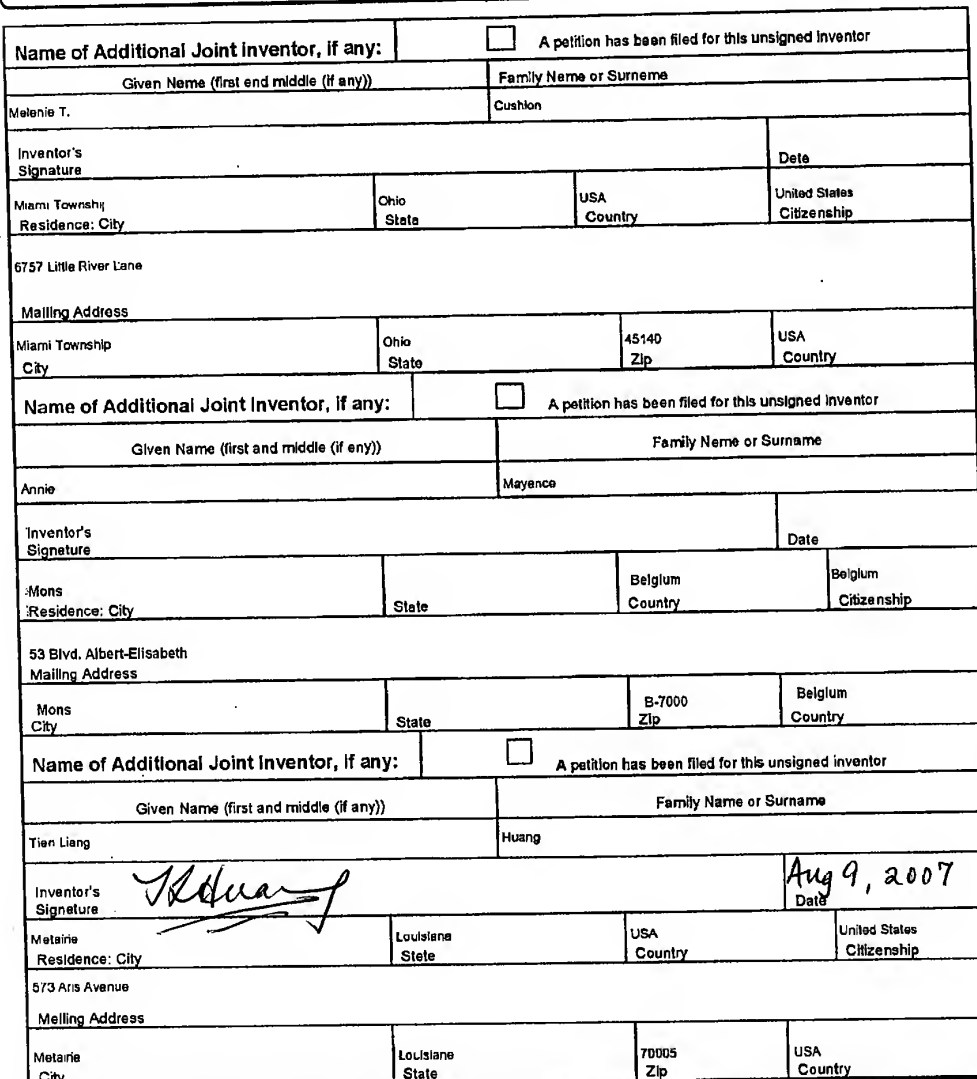 Name of Additional Joint Inventor, if any: A petition has been filed for this unsigned inventor
Given Neme (first end middle (if any)) Family Neme or Surneme
Melenie T. Cushion
Inventor's Signature Dete
Miami Township Ohio USA United States
Residence: City State Country Citizenship
6757 Little River Lane
Mailing Address
Miami Township Ohio 45140 USA
City State Zip Country
Name of Additional Joint Inventor, if any: A petition has been filed for this unsigned inventor
Given Name (first and middle (if eny)) Family Neme or Surname
Annie Mayence
Inventor's Signeture Date
Mons Belgium Belgium
Residence: City State Country Citizenship
53 Blvd. Albert-Elisabeth
Mailing Address
Mons B-7000 Belgium
City State Zip Country
Name of Additional Joint Inventor, if any: A petition has been filed for this unsigned inventor
Given Name (first and middle (if any)) Family Name or Surname
Tien Liang Huang
Inventor's Signature TLHuang Aug 9, 2007 Date
Metairie Louisiene USA United States
Residence: City Stete Country Citizenship
573 Aris Avenue
Melling Address
Metairie Louisiane 70005 USA
City State Zip Country